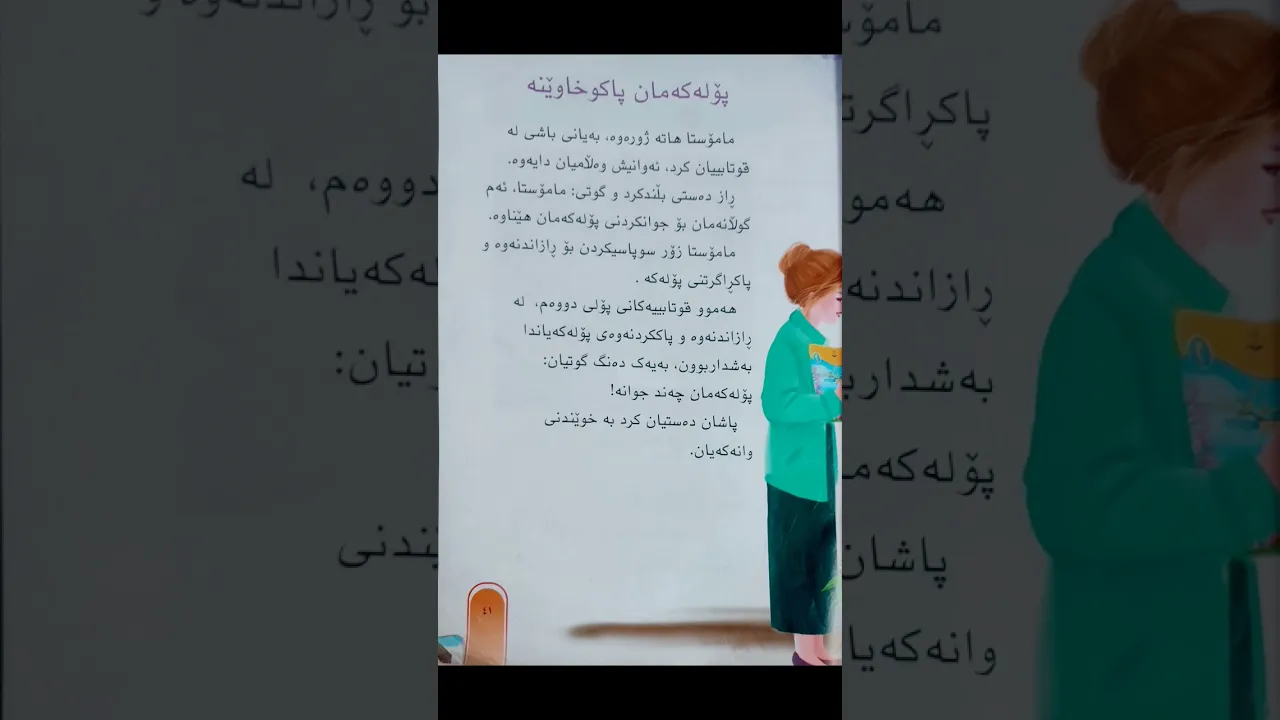 پۆلەکەمان پاکوخاوێنە
مامۆستا هاتە ژورەوە، بەیانی باشی لە
قوتابییان کرد، ئەوانیش وەڵامیان دایەوە.
ڕاز دەستی بڵندکرد و گوتی: مامۆستا، ئەم
گوڵانەمان بۆ جوانکردنی پۆلەکەمان هێناوە.
مامۆستا زۆر سوپاسیکردن بۆ ڕازاندنەوە و
پاکڕاگرتنی پۆلەکە .
هەموو قوتابییەکانی پۆلی دووەم، لە
ڕازاندنەوە و پاککردنەوەی پۆلەکەیاندا
بەشداربوون، بەیەک دەنگ گوتیان:
پۆلەکەمان چەند جوانە!
پاشان دەستیان کرد بە خوێندنی
وانەکەیان.
٤١